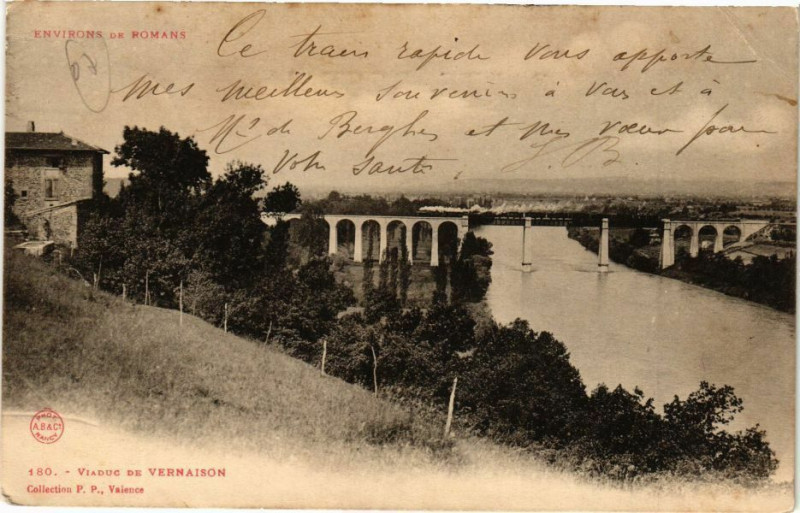 ENVIRONS DE ROMANS
Ce train rapide vous apporte
mes meilleurs souvenirs à vous et à
Mr de Berghes et mes vœux pour
Votre santé
PHOT
A.B & Cie
NANCY
180. - VIADUC DE VERNAISON
Collection P. P., Valence